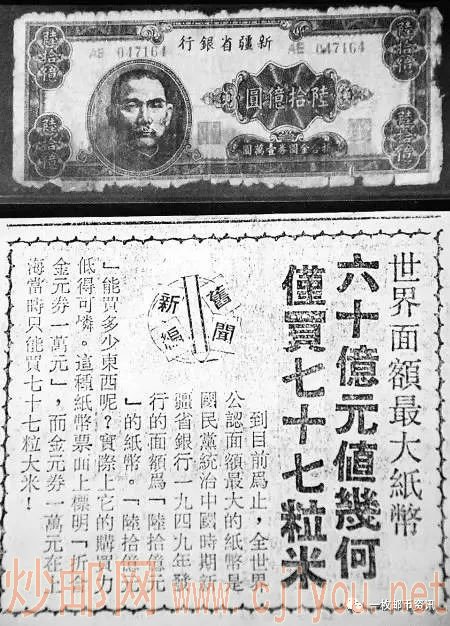 新疆省銀行
AE 047164
AE 047164
陸拾億
陸拾億
陸拾億
陸拾億
陸拾億圓
折合金圓券壹萬圓
世界面額最大紙幣
六十億元值幾何
僅買七十七粒米
舊聞
新編
到目前爲止，全世界
公認面額最大的紙幣是
國民黨統治中國時期新
疆省銀行一九四九年發
行的面額爲「陸拾億元
」的紙幣。「陸拾億元
」能買多少東西呢？實際上它的購買力
低得可憐。這種紙幣票面上標明「折合
金元券一萬元」，而金元券一萬元在上
海當時只能買七十七粒大米！
炒邮网 www.cjiyou.net
一枚邮币资讯